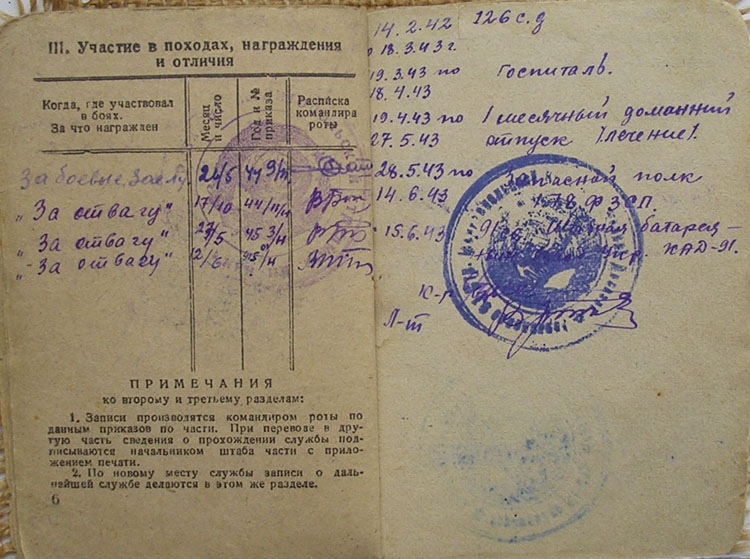 III. Участие в походах, награждения
и отличия
Когда, где участвовал
в боях.
За что награжден
Месяц
и число
Год и №
приказа
Расписка
командира
роты
За боевые
"За отвагу" 17/10
"За отвагу"
"За отвагу" 2/6
ПРИМЕЧАНИЯ
ко второму и третьему разделам:
1. Записи производятся командиром роты по
данным приказов по части. При переводе в дру-
гую часть сведения о прохождении службы под-
писываются начальником штаба части с прило-
жением печати.
2. По новому месту службы записи о даль-
нейшей службе делаются в этом же разделе.
6
14.2.42 126 с.д
18.3.43г.
19.3.43 по Госпиталь.
18.4.43
19.4.43 по 1 месячный домашний
27.5.43 отпуск /лечение/.
28.5.43 по Запасной полк
14.6.43 178 ФЗСП.
15.6.43 батарея
КАД-91.
К-р
Л-т